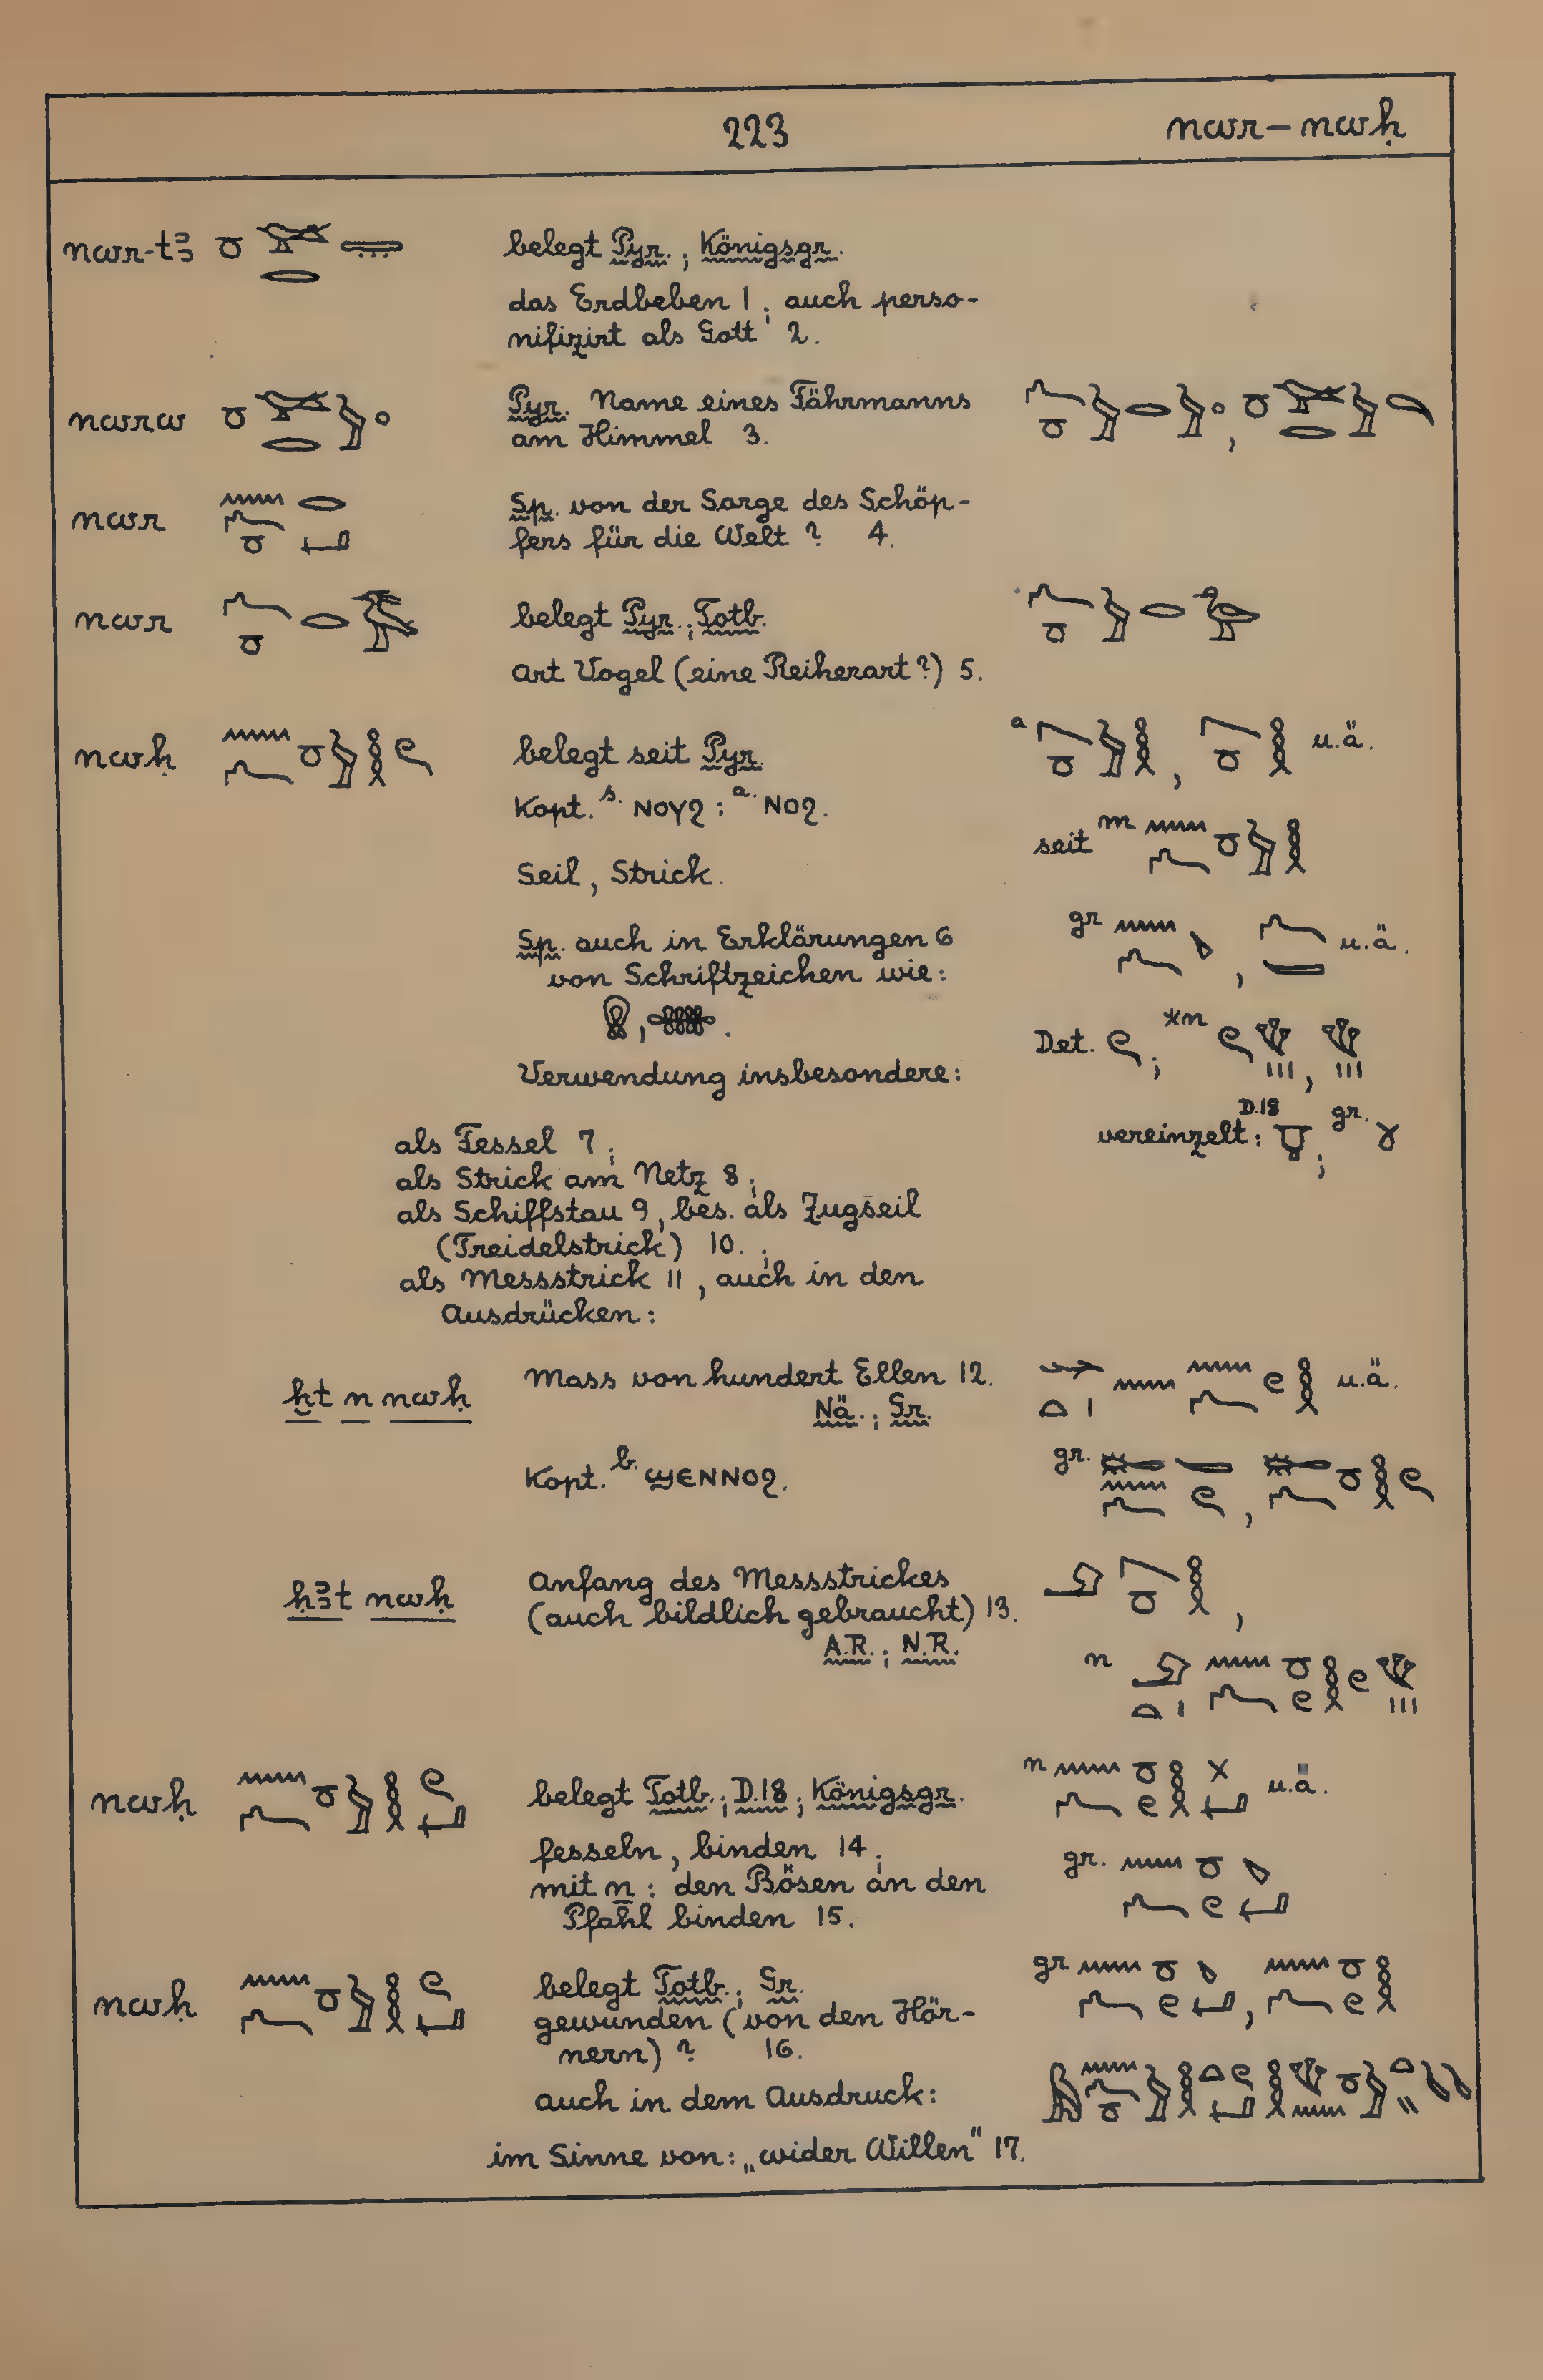 223 nwr–nwḥ
nwr-tꜣ belegt Pyr.; Königsgr.
das Erdbeben 1; auch perso-
nifizirt als Gott 2.
nwrw Pyr. Name eines Fährmanns
am Himmel 3.
nwr Sp. von der Sorge des Schöp-
fers für die Welt ? 4.
nwr belegt Pyr.; Totb.
Art Vogel (eine Reiherart?) 5.
nwḥ belegt seit Pyr. a , u.ä.
Kopt. s. ⲚⲞⲨϨ : a. ⲚⲞϨ.
seit m
Seil, Strick.
Sp. auch in Erklärungen 6 gr , u.ä.
von Schriftzeichen wie:
, .
Det. ; *n ,
Verwendung insbesondere:
vereinzelt: D.18 ; gr.
als Fessel 7;
als Strick am Netz 8;
als Schiffstau 9, bes. als Zugseil
(Treidelstrick) 10.;
als Messstrick 11, auch in den
Ausdrücken:
ḫt n nwḥ Mass von hundert Ellen 12. u.ä.
Nä.; Gr.
Kopt. b. ϢⲈⲚⲚⲞϨ. gr. ,
ḥꜣt nwḥ Anfang des Messstrickes
(auch bildlich gebraucht) 13. ,
A.R.; N.R. n
nwḥ belegt Totb.; D.18; Königsgr. n u.ä.
fesseln, binden 14; gr.
mit n: den Bösen an den
Pfahl binden 15.
nwḥ belegt Totb.; Gr. gr ,
gewunden (von den Hör-
nern) ? 16.
auch in dem Ausdruck:
im Sinne von: „wider Willen" 17.